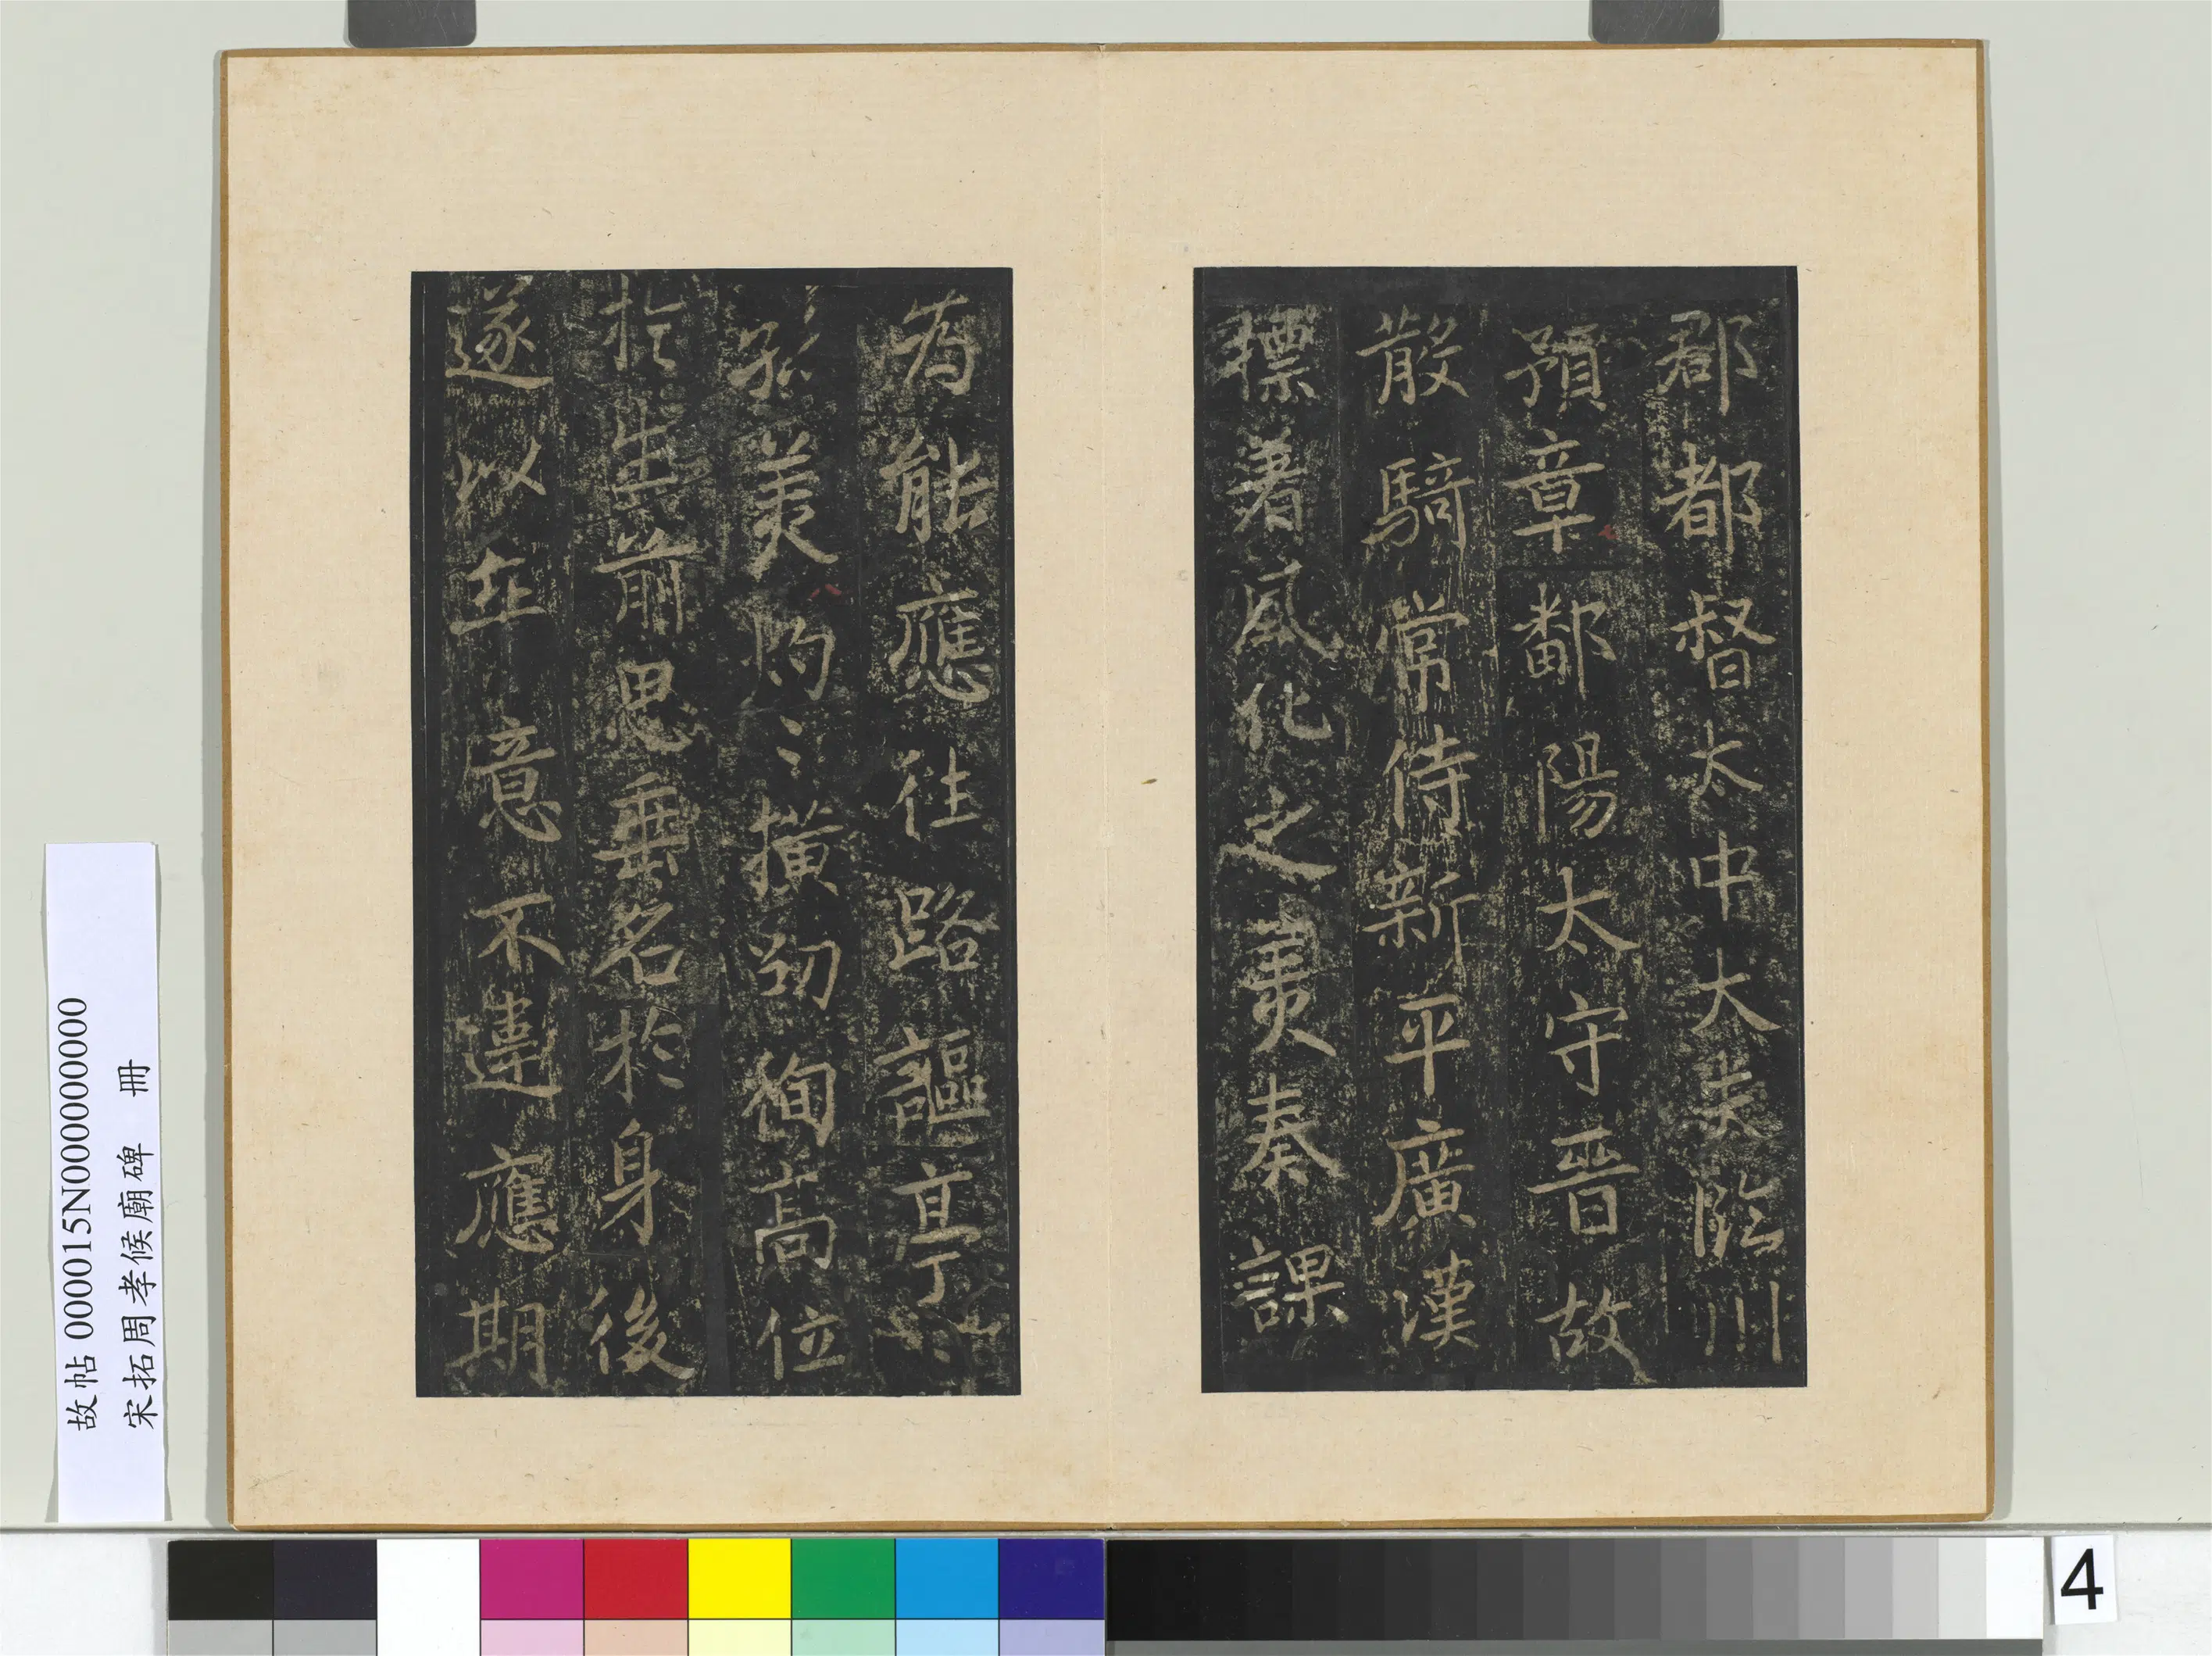 郡都督太中大夫臨川
預章鄱陽太守晉故
散騎常侍新平廣漢
標著風化之美奏課
為能應往路謳亭
美灼〻橫刧徇高位
於生前思垂名於身後
遂以在意不違應期
故帖 000015N000000000
宋拓周孝侯廟碑 冊
4